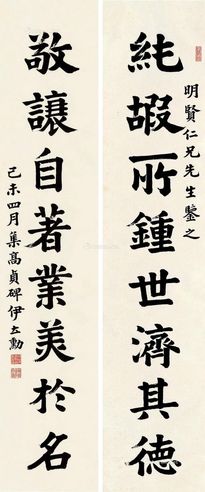 明賢仁兄先生鑒之
純嘏所鍾世濟其德
敬讓自著業美於名
己未四月集高貞碑伊立勳